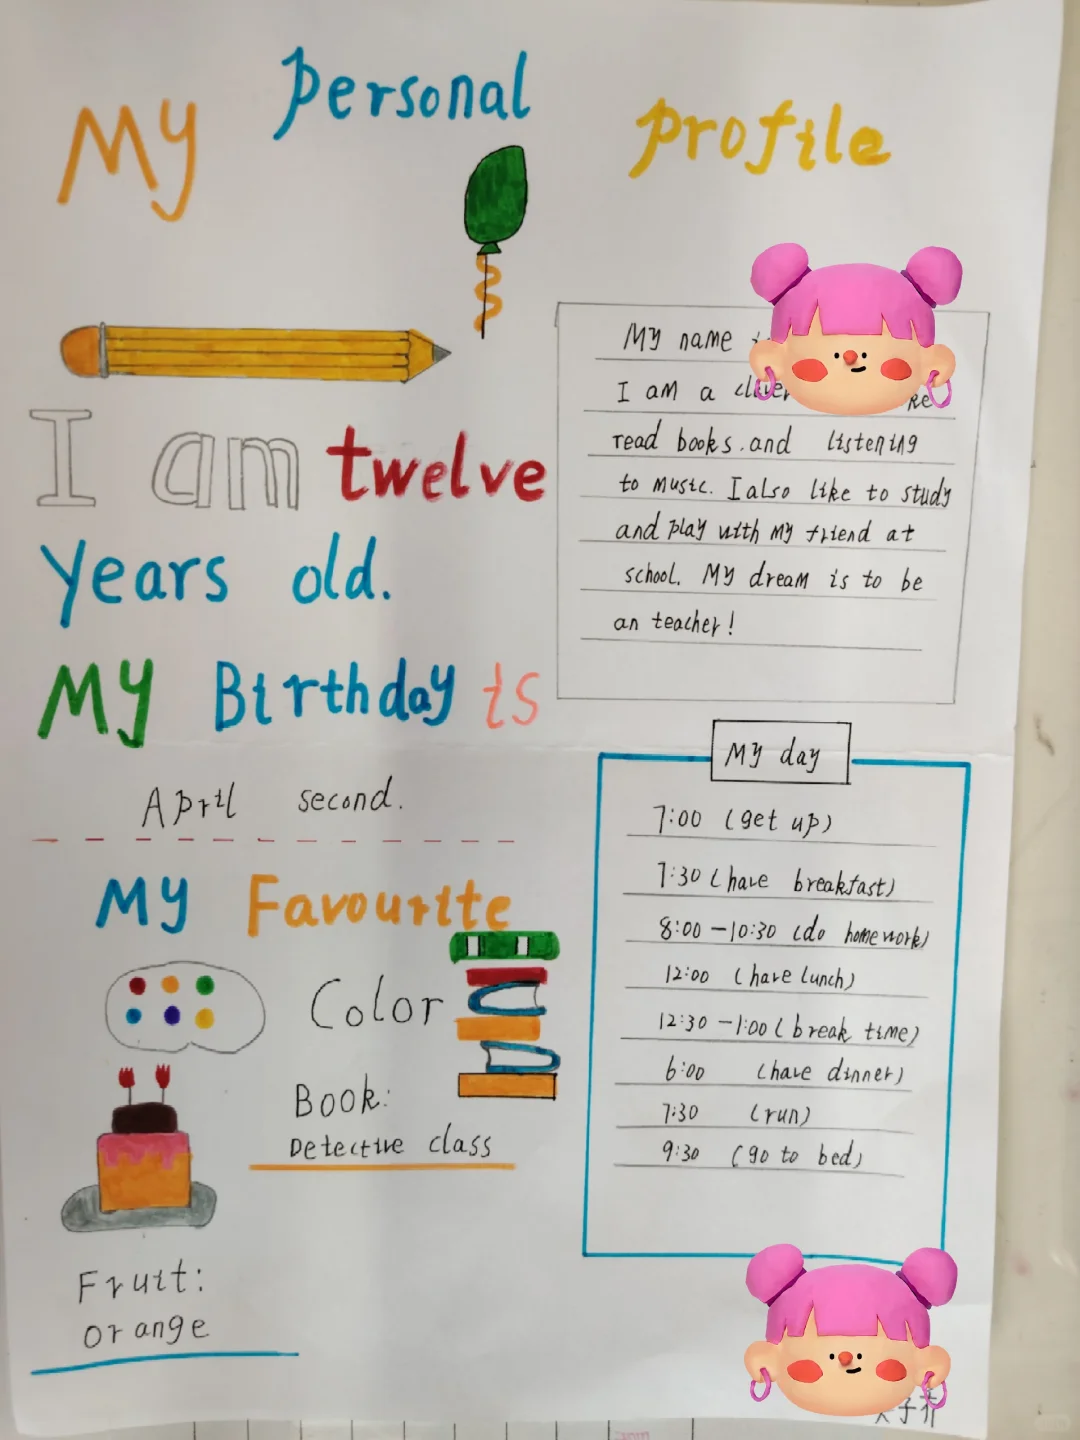 My personal profile
I am twelve
years old.
My Birthday is
April second.
My Favourite
Color
Book:
Detective class
Fruit:
orange
My name
I am a clever
read books.and listening
to music. I also like to study
and play with my friend at
school. My dream is to be
an teacher!
My day
7:00 (get up)
7:30 (have breakfast)
8:00-10:30 (do homework)
12:00 (have lunch)
12:30-1:00 (break time)
6:00 (have dinner)
7:30 (run)
9:30 (go to bed)